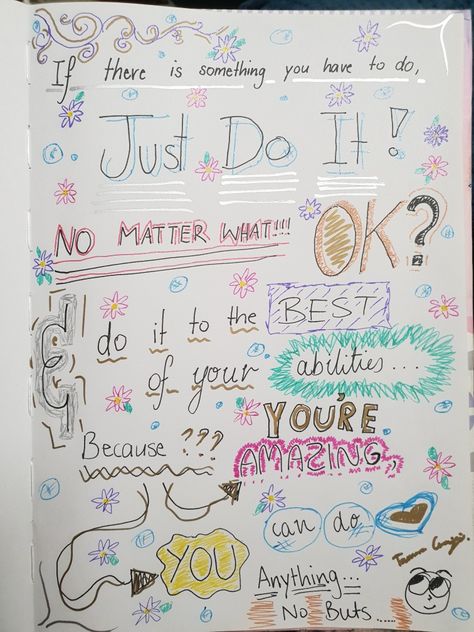 If there is something you have to do,
Just Do It!
NO MATTER WHAT!!! OK?
& do it to the BEST
of your abilities....
Because ??? YOU'RE
AMAZING,
YOU can do
Anything...
No Buts.....